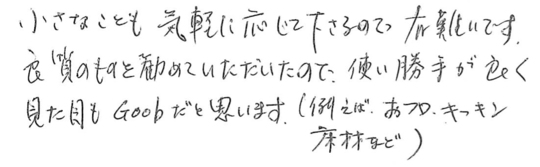 小さなことも気軽に応じて下さるので有難いです。
良質のものを勧めていただいたので、使い勝手が良く
見た目もGoobだと思います。(例えば、おフロ、キッキン
床材など)